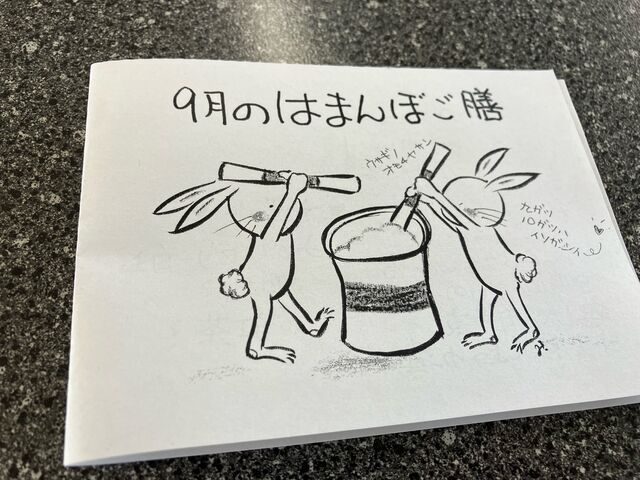 9月のはまんぼご膳
ウサギノ
オモチヤサン
九ガツ
10ガツハ
イソガシイ